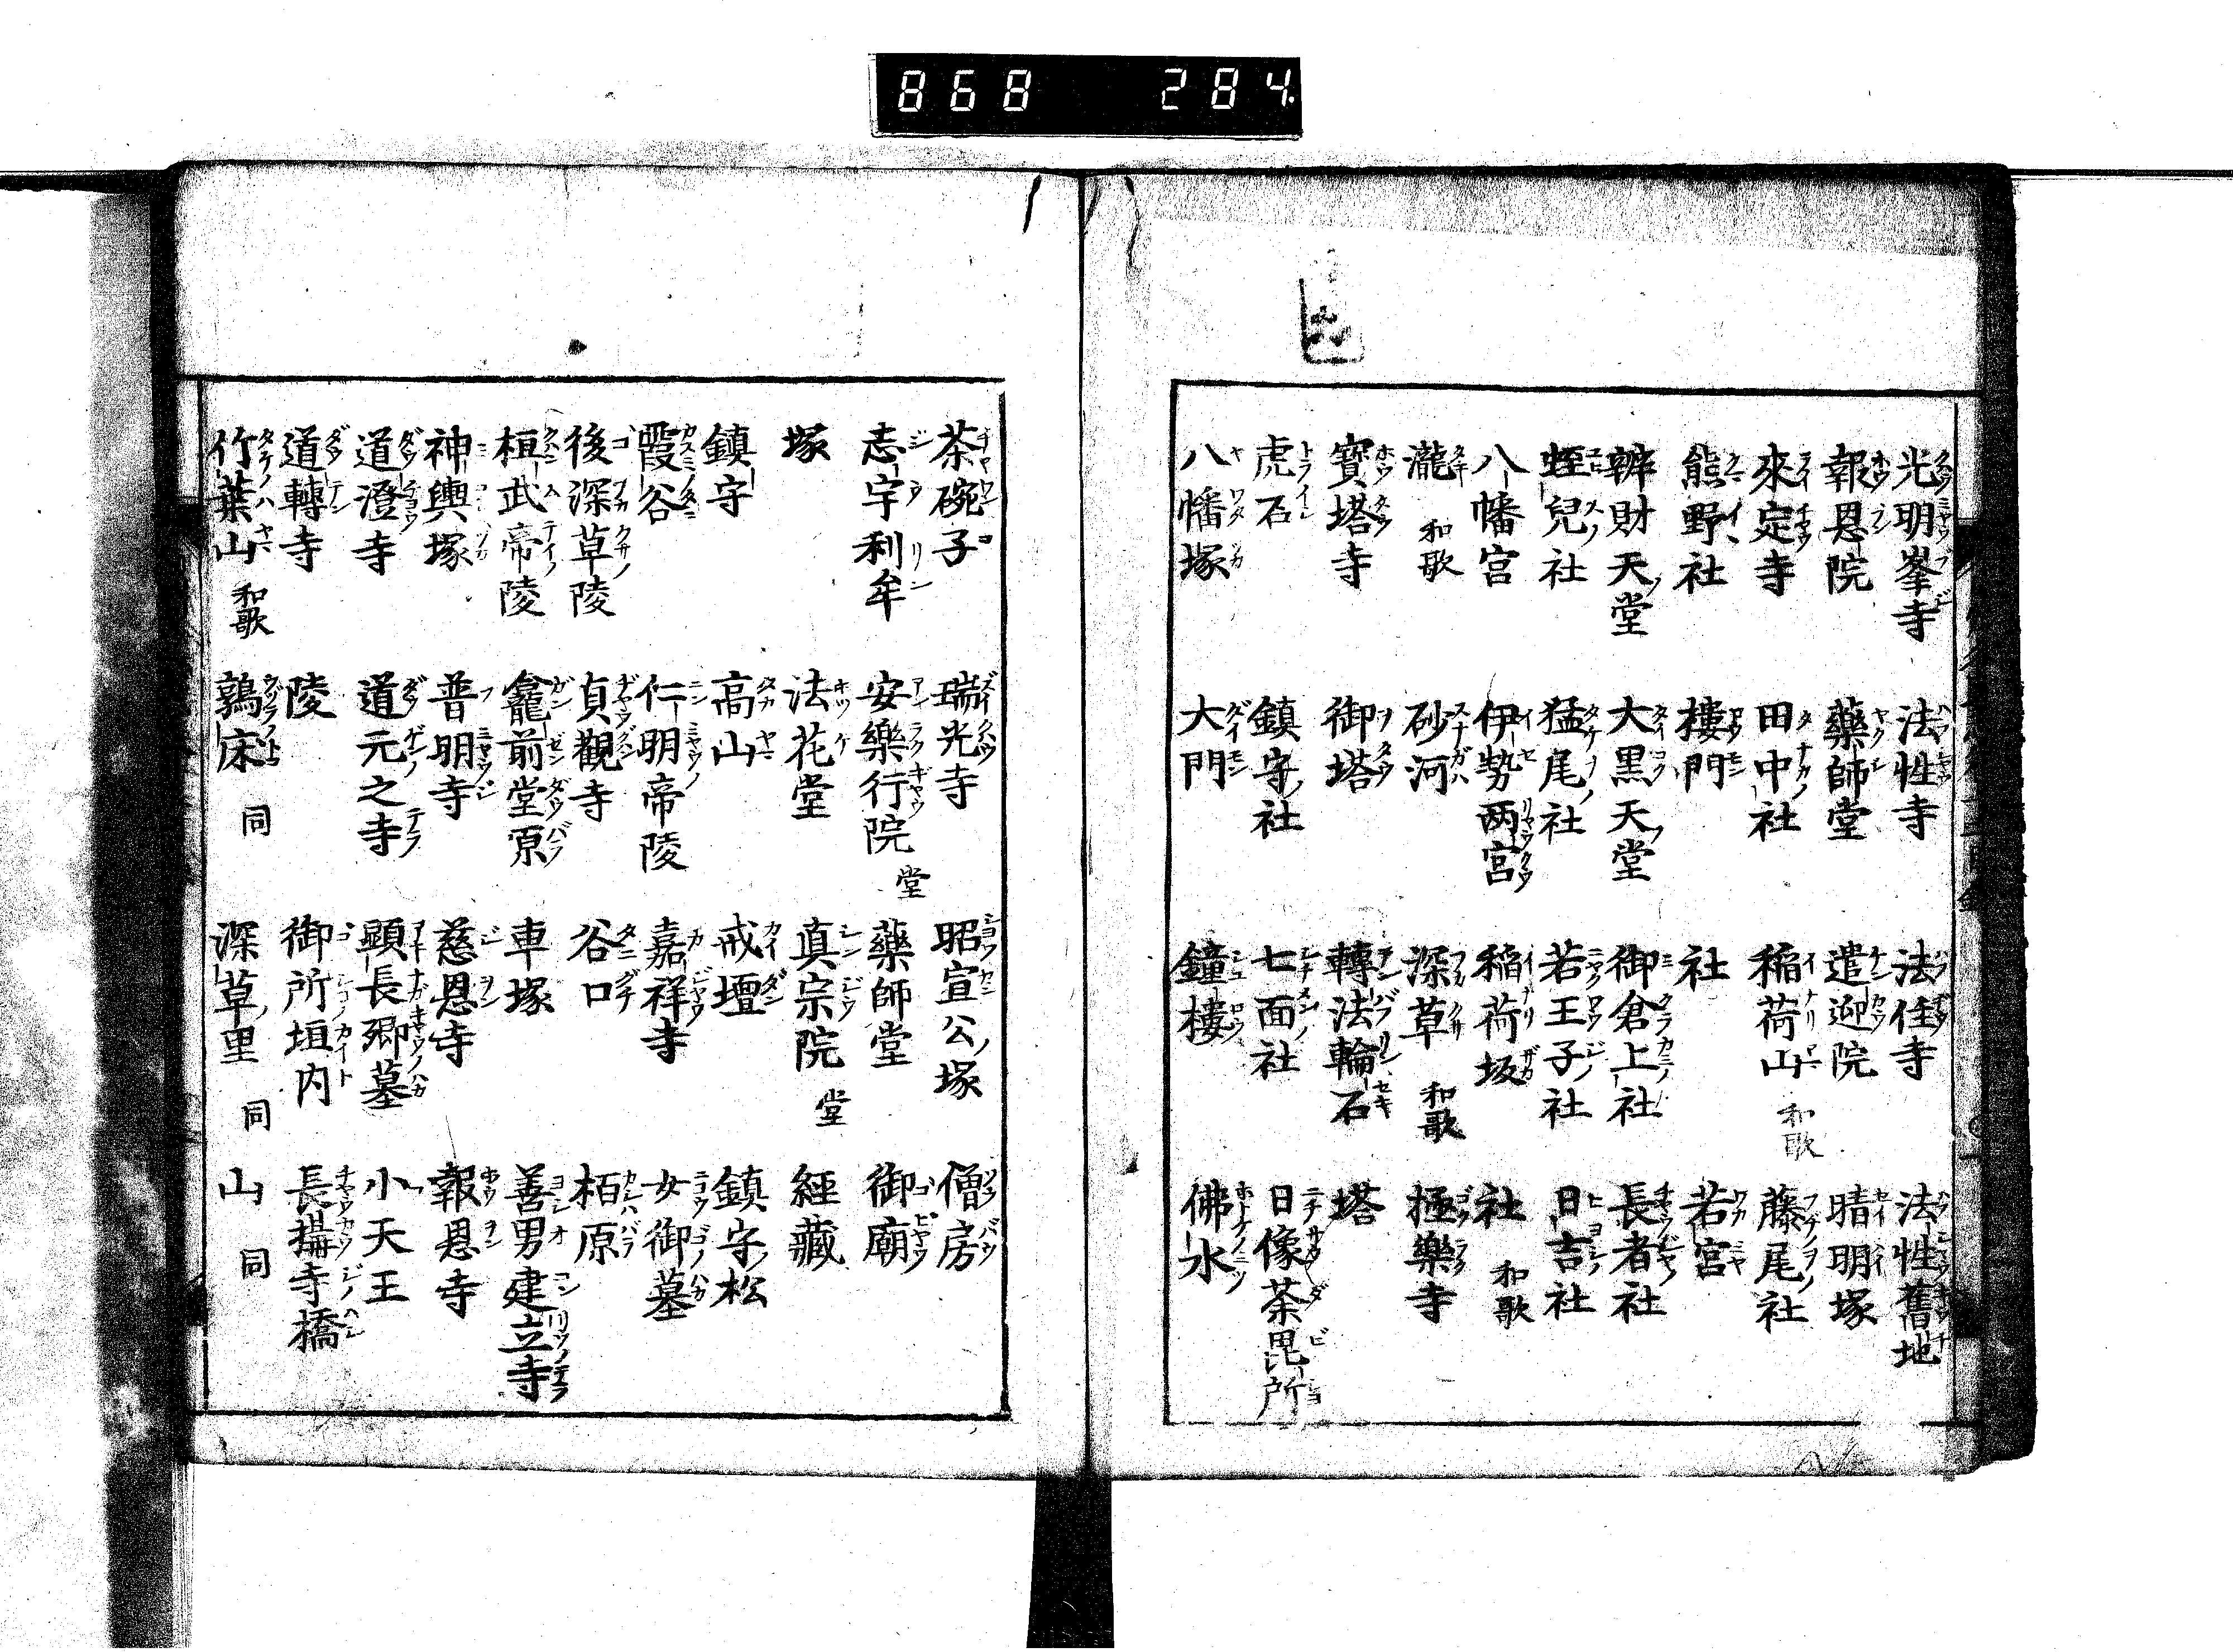 868 284
光明峯寺 法性寺 法住寺 法性舊地
報恩院 藥師堂 遣迎院 晴明塚
來定寺 田中社 稲荷山 和歌 藤尾社
熊野社 樓門 社 若宮
辨財天堂 大黒天堂 御倉上社 長者社
蛭兒社 猛尾社 若王子社 日吉社
八幡宮 伊勢两宮 稲荷坂 社 和歌
瀧 和歌 砂河 深草 和歌 極樂寺
寳塔寺 御塔 轉法輪石 塔
虎石 鎮守社 七面社 日像茶毘所
八幡塚 大門 鐘樓 佛水
茶碗子 瑞光寺 昭宣公塚 僧房
志宇利牟 安樂行院 堂 藥師堂 御廟
塚 法花堂 真宗院 堂 經藏
鎮守 高山 戒壇 鎮守松
霞谷 仁明帝陵 嘉祥寺 女御墓
後深草陵 貞觀寺 谷口 栢原
桓武帝陵 龕前堂原 車塚 善男建立寺
神輿塚 普明寺 慈恩寺 報恩寺
道澄寺 道元之寺 顕長卿墓 小天王
道轉寺 陵 御所垣内 長講寺橋
竹葉山 和歌 鶉床 同 深草里 同 山 同